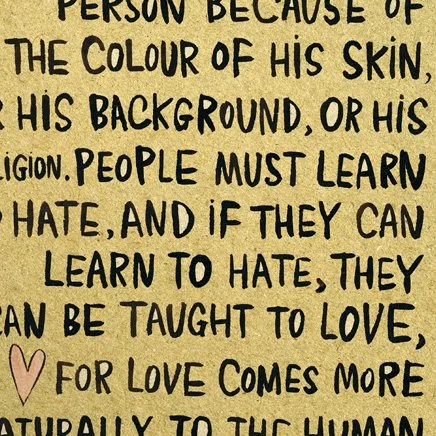 PERSON BECAUSE OF
THE COLOUR OF HIS SKIN,
R HIS BACKGROUND, OR HIS
LIGION. PEOPLE MUST LEARN
HATE, AND IF THEY CAN
LEARN TO HATE, THEY
CAN BE TAUGHT TO LOVE,
FOR LOVE COMES MORE
ATURALLY TO THE HUMAN